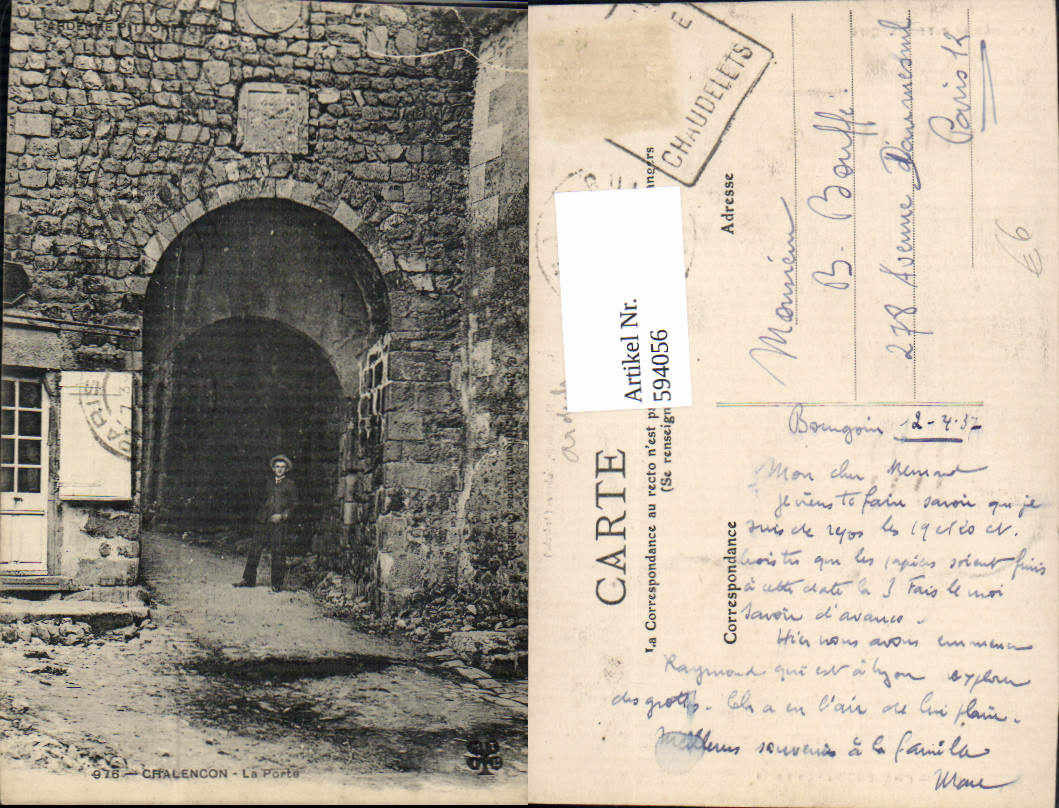 L'ARDÈCHE PITTORESQUE
PARIS
976 - CHALENCON - La Porte
E
CHAUDELETS
Artikel Nr.
594056
CARTE
La Correspondance au recto n'est pa
angers
(Se renseign
Correspondance
Adresse
Monsieur
B. Bouffi
278 Avenue Daumesnil
Paris 12
€6
Bourgoin 12-4-37
Mon cher Bernard
je viens te faire savoir que je
suis de repos les 19 et 20 ct.
que les papiers soient finis
à cette date là ? Fais le moi
savoir d'avance.
Hier nous avons emmené
Raymond qui est à Lyon explorer
des grottes. Cela a eu l'air de lui plaire.
Meilleurs souvenirs à la famille
Marc